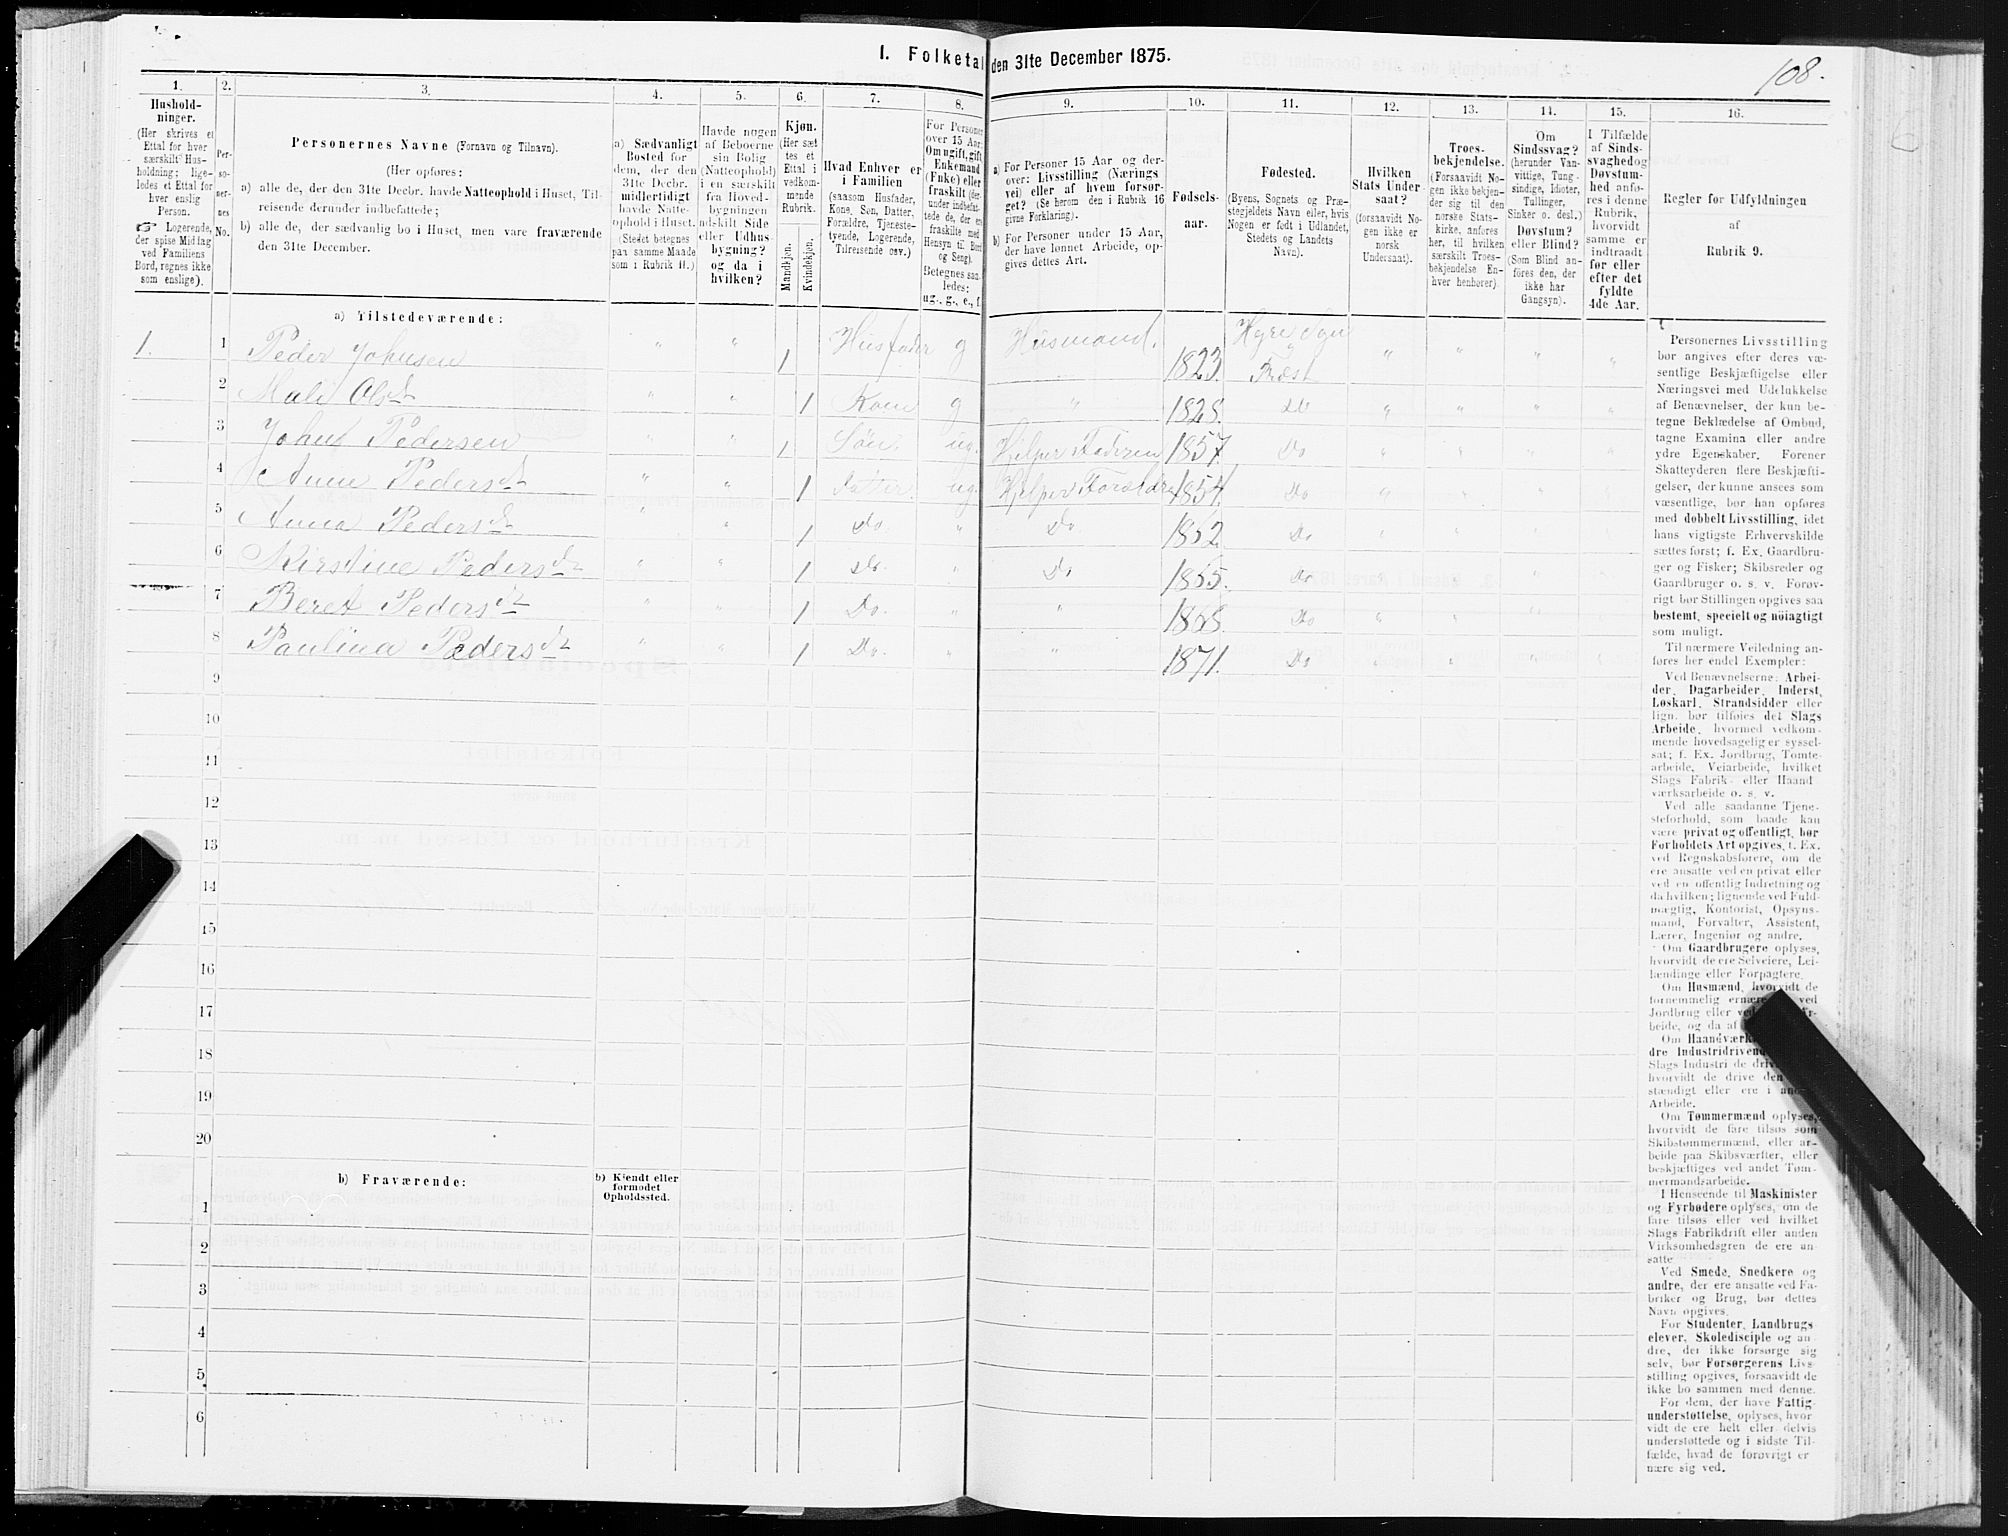 I. Folketal den 31te December 1875.
108.
1. 2. 3. 4. 5. 6. 7. 8. 9. 10. 11. 12. 13. 14. 15. 16.
Hushold-
ninger.
(Her skrives et
Ettal for hver
særskilt Hus-
holdning; lige-
ledes et Ettal for
hver enslig
Person.
☞ Logerende,
der spise Middag
ved Familiens
Bord, regnes ikke
som enslige).
Per-
so-
ner-
nes
No.
Personernes Navne (Fornavn og Tilnavn).
(Her opføres:
a) alle de, der den 31te Decbr. havde Natteophold i Huset, Til-
reisende derunder indbefattede;
b) alle de, der sædvanlig bo i Huset, men vare fraværende
den 31te December.
a) Sædvanligt
Bosted for
dem, der den
31te Decbr.
midlertidigt
havde Natte-
ophold i Huset.
(Stedet betegnes
paa samme Maade
som i Rubrik 11.)
Havde nogen
af Beboerne
sin Bolig
(Natteophold)
i en særskilt
fra Hoved-
bygningen
adskilt Side
eller Udhus-
bygning?
og da i
hvilken?
Kjøn.
(Her sæt-
tes et
Ettal i
vedkom-
mende
Rubrik.
Mandkjøn.
Kvindekjøn.
Hvad Enhver er
i Familien
(saasom Husfader,
Kone, Søn, Datter,
Forældre, Tjeneste-
tyende, Logerende,
Tilreisende osv.)
For Personer
over 15 Aar:
Om ugift, gift,
Enkemand
(Enke) eller
fraskilt (der-
under indbefat-
tede de, der ere
fraskilte med
Hensyn til Bord
og Seng).
Betegnes saa-
ledes:
ug., g., e., f.
a) For Personer 15 Aar og der-
over: Livsstilling (Nærings
vei) eller af hvem forsør-
get? (Se herom den i Rubrik 16
givne Forklaring).
b) For Personer under 15 Aar,
der have lønnet Arbeide, op-
gives dettes Art.
Fødsels-
aar.
Fødested.
(Byens, Sognets og Præ-
stegjeldets Navn eller, hvis
Nogen er født i Udlandet,
Stedets og Landets
Navn).
Hvilken
Stats Under-
saat?
(forsaavidt No-
gen ikke er
norsk
Undersaat).
Troes-
bekjendelse.
(Forsaavidt No-
gen ikke bekjen-
der sig til den
norske Stats-
kirke, anføres
her, til hvilken
særskilt Troes-
bekjendelse En-
hver henhører).
Om
Sindssvag?
(herunder Van-
vittige, Tung-
sindige, Idioter,
Tullinger,
Sinker o. desl.)
Døvstum?
eller Blind?
(Som Blind an-
føres den, der
ikke har
Gangsyn).
I Tilfælde
af Sinds-
svaghed og
Døvstum-
hed anfø-
res i denne
Rubrik,
hvorvidt
samme er
indtraadt
før eller
efter det
fyldte
4de Aar.
Regler for Udfyldningen
af
Rubrik 9.
a) Tilstedeværende:
1. 1 Peder Johnsen " " 1 Husfader g Husmand. 1823. Hegre Sogn Præst " " " "
2 Mali Olsdt " " 1 Kone g " 1828. Do " " " "
3 John Pedersen " " 1 Søn. ug. Hjelper Faderen 1857. Do " " " "
4 Anne Pedersdt " " 1 Datter. ug. Hjelper Forældre 1854. Do " " " "
5 Anna Pedersdt " " 1 Do. " Do 1862. Do " " " "
6 Kirstine Pedersdt " " 1 Do. " Do 1865. Do " "
7 Beret Pedersdt " " 1 Do. " " 1868. Do " " " "
8 Paulina Pedersdt " " 1 Do. " " 1871. Do " " " "
9
10
11
12
13
14
15
16
17
18
19
20
b) Fraværende:
b) Kjendt eller
formodet
Opholdssted.
1
2
3
4
5
6
Personernes Livsstilling
bør angives efter deres væ-
sentlige Beskjæftigelse eller
Næringsvei med Udelukkelse
af Benævnelser, der kun be-
tegne Beklædelse af Ombud,
tagne Examina eller andre
ydre Egenskaber. Forener
Skatteyderen flere Beskjæfti-
gelser, der kunne ansees som
væsentlige, bør han opføres
med dobbelt Livsstilling, idet
hans vigtigste Erhvervskilde
sættes først; f. Ex. Gaardbru-
ger og Fisker; Skibsreder og
Gaardbruger o. s. v. Forøv-
rigt bør Stillingen opgives saa
bestemt, specielt og nöiagtigt
som muligt.
Til nærmere Veiledning an-
føres her endel Exempler:
Ved Benævnelserne: Arbei-
der, Dagarbeider, Inderst,
Løskarl, Strandsidder eller
lign. bør tilføies det Slags
Arbeide, hvormed vedkom-
mende hovedsagelig er syssel-
sat; f. Ex. Jordbrug, Tomte-
arbeide, Veiarbeide, hvilket
Slags Fabrik- eller Haand-
værksarbeide o. s. v.
Ved alle saadanne Tjene-
steforhold, som baade kan
være privat og offentligt, bør
Forholdets Art opgives, f. Ex.
ved Regnskabsførere, om de
ere ansatte ved en privat eller
ved en offentlig Indretning og
da hvilken; lignende ved Fuld-
mægtig, Kontorist, Opsyns-
mand, Forvalter, Assistent,
Lærer, Ingeniør og andre.
Om Gaardbrugere oplyses,
hvorvidt de ere Selveiere, Lei-
lændinge eller Forpagtere.
Om Husmænd, hvorvidt de
fornemmelig ernære ved
Jordbrug eller ved
beide, og da af
Om Haandværk
dre Industridrivend
Slags Industri de driv
hvorvidt de drive den
stændigt eller ere i an
Arbeide.
Om Tømmermænd oplyses,
hvorvidt de fare tilsøs som
Skibstømmermænd, eller ar-
beide paa Skibsværfter, eller
beskjæftiges ved andet Tøm-
mermandsarbeide.
I Henseende til Maskinister
og Fyrbødere oplyses, om de
fare tilsøs eller ved hvilket
Slags Fabrikdrift eller anden
Virksomhedsgren de ere an-
satte
Ved Smede, Snedkere og
andre, der ere ansatte ved Fa-
briker og Brug, bør dettes
Navn opgives.
For Studenter, Landbrugs-
elever, Skoledisciple og an-
dre, der ikke forsørge sig
selv, bør Forsørgerens Livs-
stilling opgives, forsaavidt de
ikke bo sammen med denne.
For dem, der have Fattig-
understøttelse, oplyses, hvor-
vidt de ere helt eller delvis
understøttede og i sidste Til-
fælde, hvad de forøvrigt er-
nære sig ved.